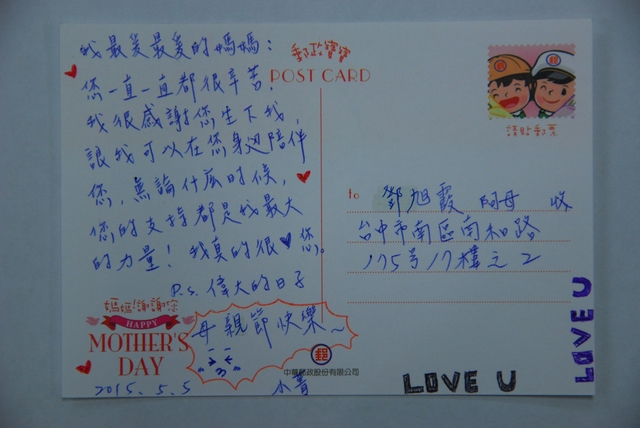 我最美最愛的媽媽：
您一直一直都很辛苦，
我很感謝您生下我，
讓我可以在您身邊陪伴
您，無論什麼时候，
您的支持都是我最大
的力量！我真的很♥您。
P.s. 偉大的日子
母親節快樂～
小菁
2015.5.5
媽媽謝謝您
HAPPY
MOTHER'S
DAY
郵政寶寶
POST CARD
請貼郵票
to 鄧旭霞 阿母 收
台中市南區南和路
175号17樓之2
郵
中華郵政股份有限公司
LOVE U
LOVE U